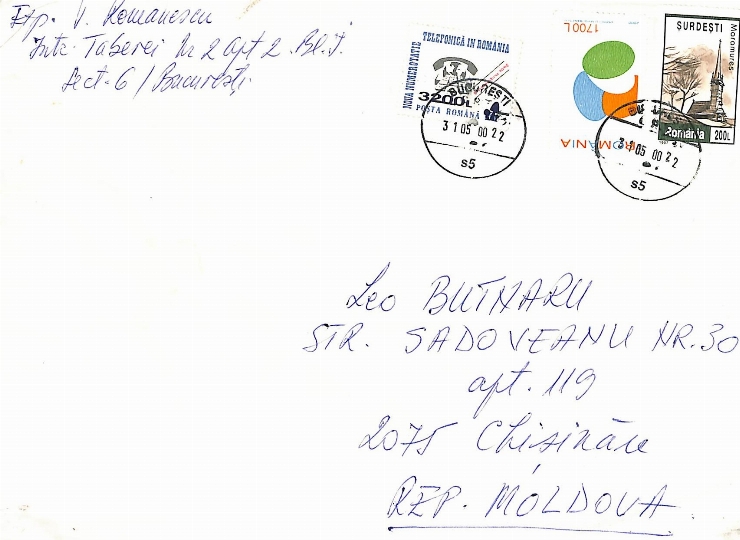 Exp. V. Romanescu
Intr. Taberei Nr 2 apt 2. Bl. J.
Sect. 6 / București
NOUA NUMEROTAȚIE
TELEFONICĂ ÎN ROMÂNIA
3200L
POȘTA ROMÂNĂ
BUCUREȘTI
31 05 00 22
s5
1700L
ROMÂNIA
ȘURDEȘTI
Maramureș
România 200L
31 05 00 22
s5
Leo BUTNARU
STR. SADOVEANU NR. 30
apt. 119
2075 Chișinău
REP. MOLDOVA